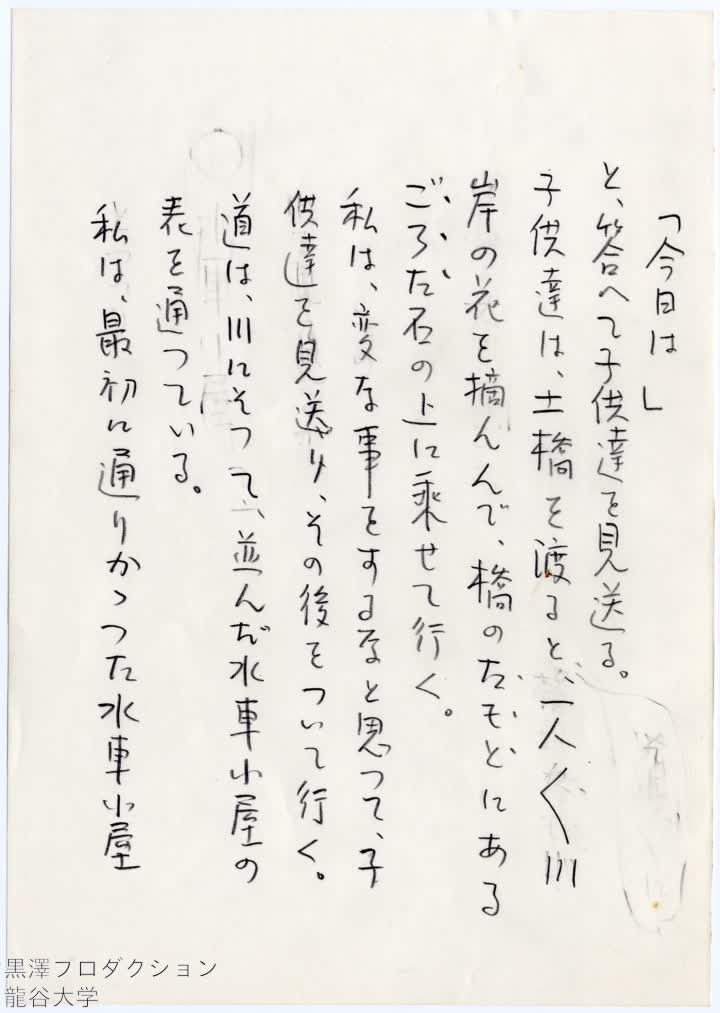 「今日は」
と、答へて子供達を見送る。
子供達は、土橋を渡ると、一人〱川
岸の花を摘んんで、橋のたもとにある
ごろた石の上に乗せて行く。
私は、変な事をするなと思つて、子
供達を見送り、その後をついて行く。
道は、川にそつて、並んだ水車小屋の
表を通つている。
私は、最初に通りかゝつた水車小屋
黒澤プロダクション
龍谷大学